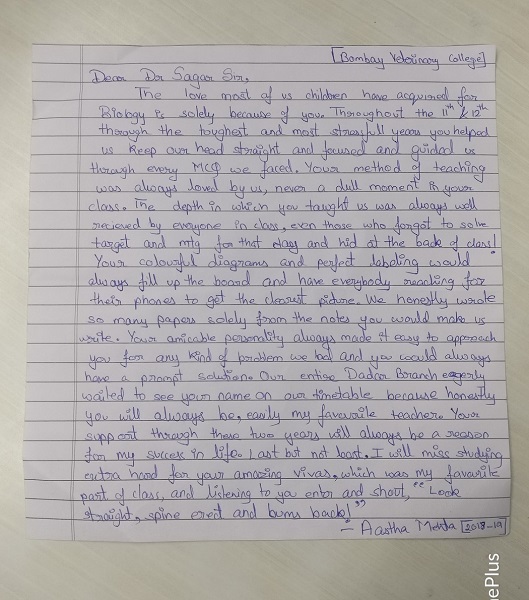 [Bombay Veterinary College]
Dear Dr Sagar Sir,
The love most of us children have acquired for
Biology is solely because of you. Throughout the 11th & 12th
through the toughest and most stressfull years you helped
us keep our head straight and focused and guided us
through every MCQ we faced. Your method of teaching
was always loved by us, never a dull moment in your
class. The depth in which you taught us was always well
recieved by everyone in class, even those who forgot to solve
target and mtg for that day and hid at the back of class!
Your colourful diagrams and perfect labeling would
always fill up the board and have everybody reaching for
their phones to get the clearest picture. We honestly wrote
so many papers solely from the notes you would make us
write. Your amicable personality always made it easy to approach
you for any kind of problem we had and you would always
have a prompt solution. Our entire Dadar Branch eagerly
waited to see your name on our timetable because honestly
you will always be, easily my favourite teacher. Your
support through these two years will always be a reason
for my success in life. Last but not least. I will miss studying
extra hard for your amazing vivas, which was my favourite
part of class, and listening to you enter and shout, "Look
straight, spine erect and bums back!"
- Aastha Mehta [2018-19]
nePlus